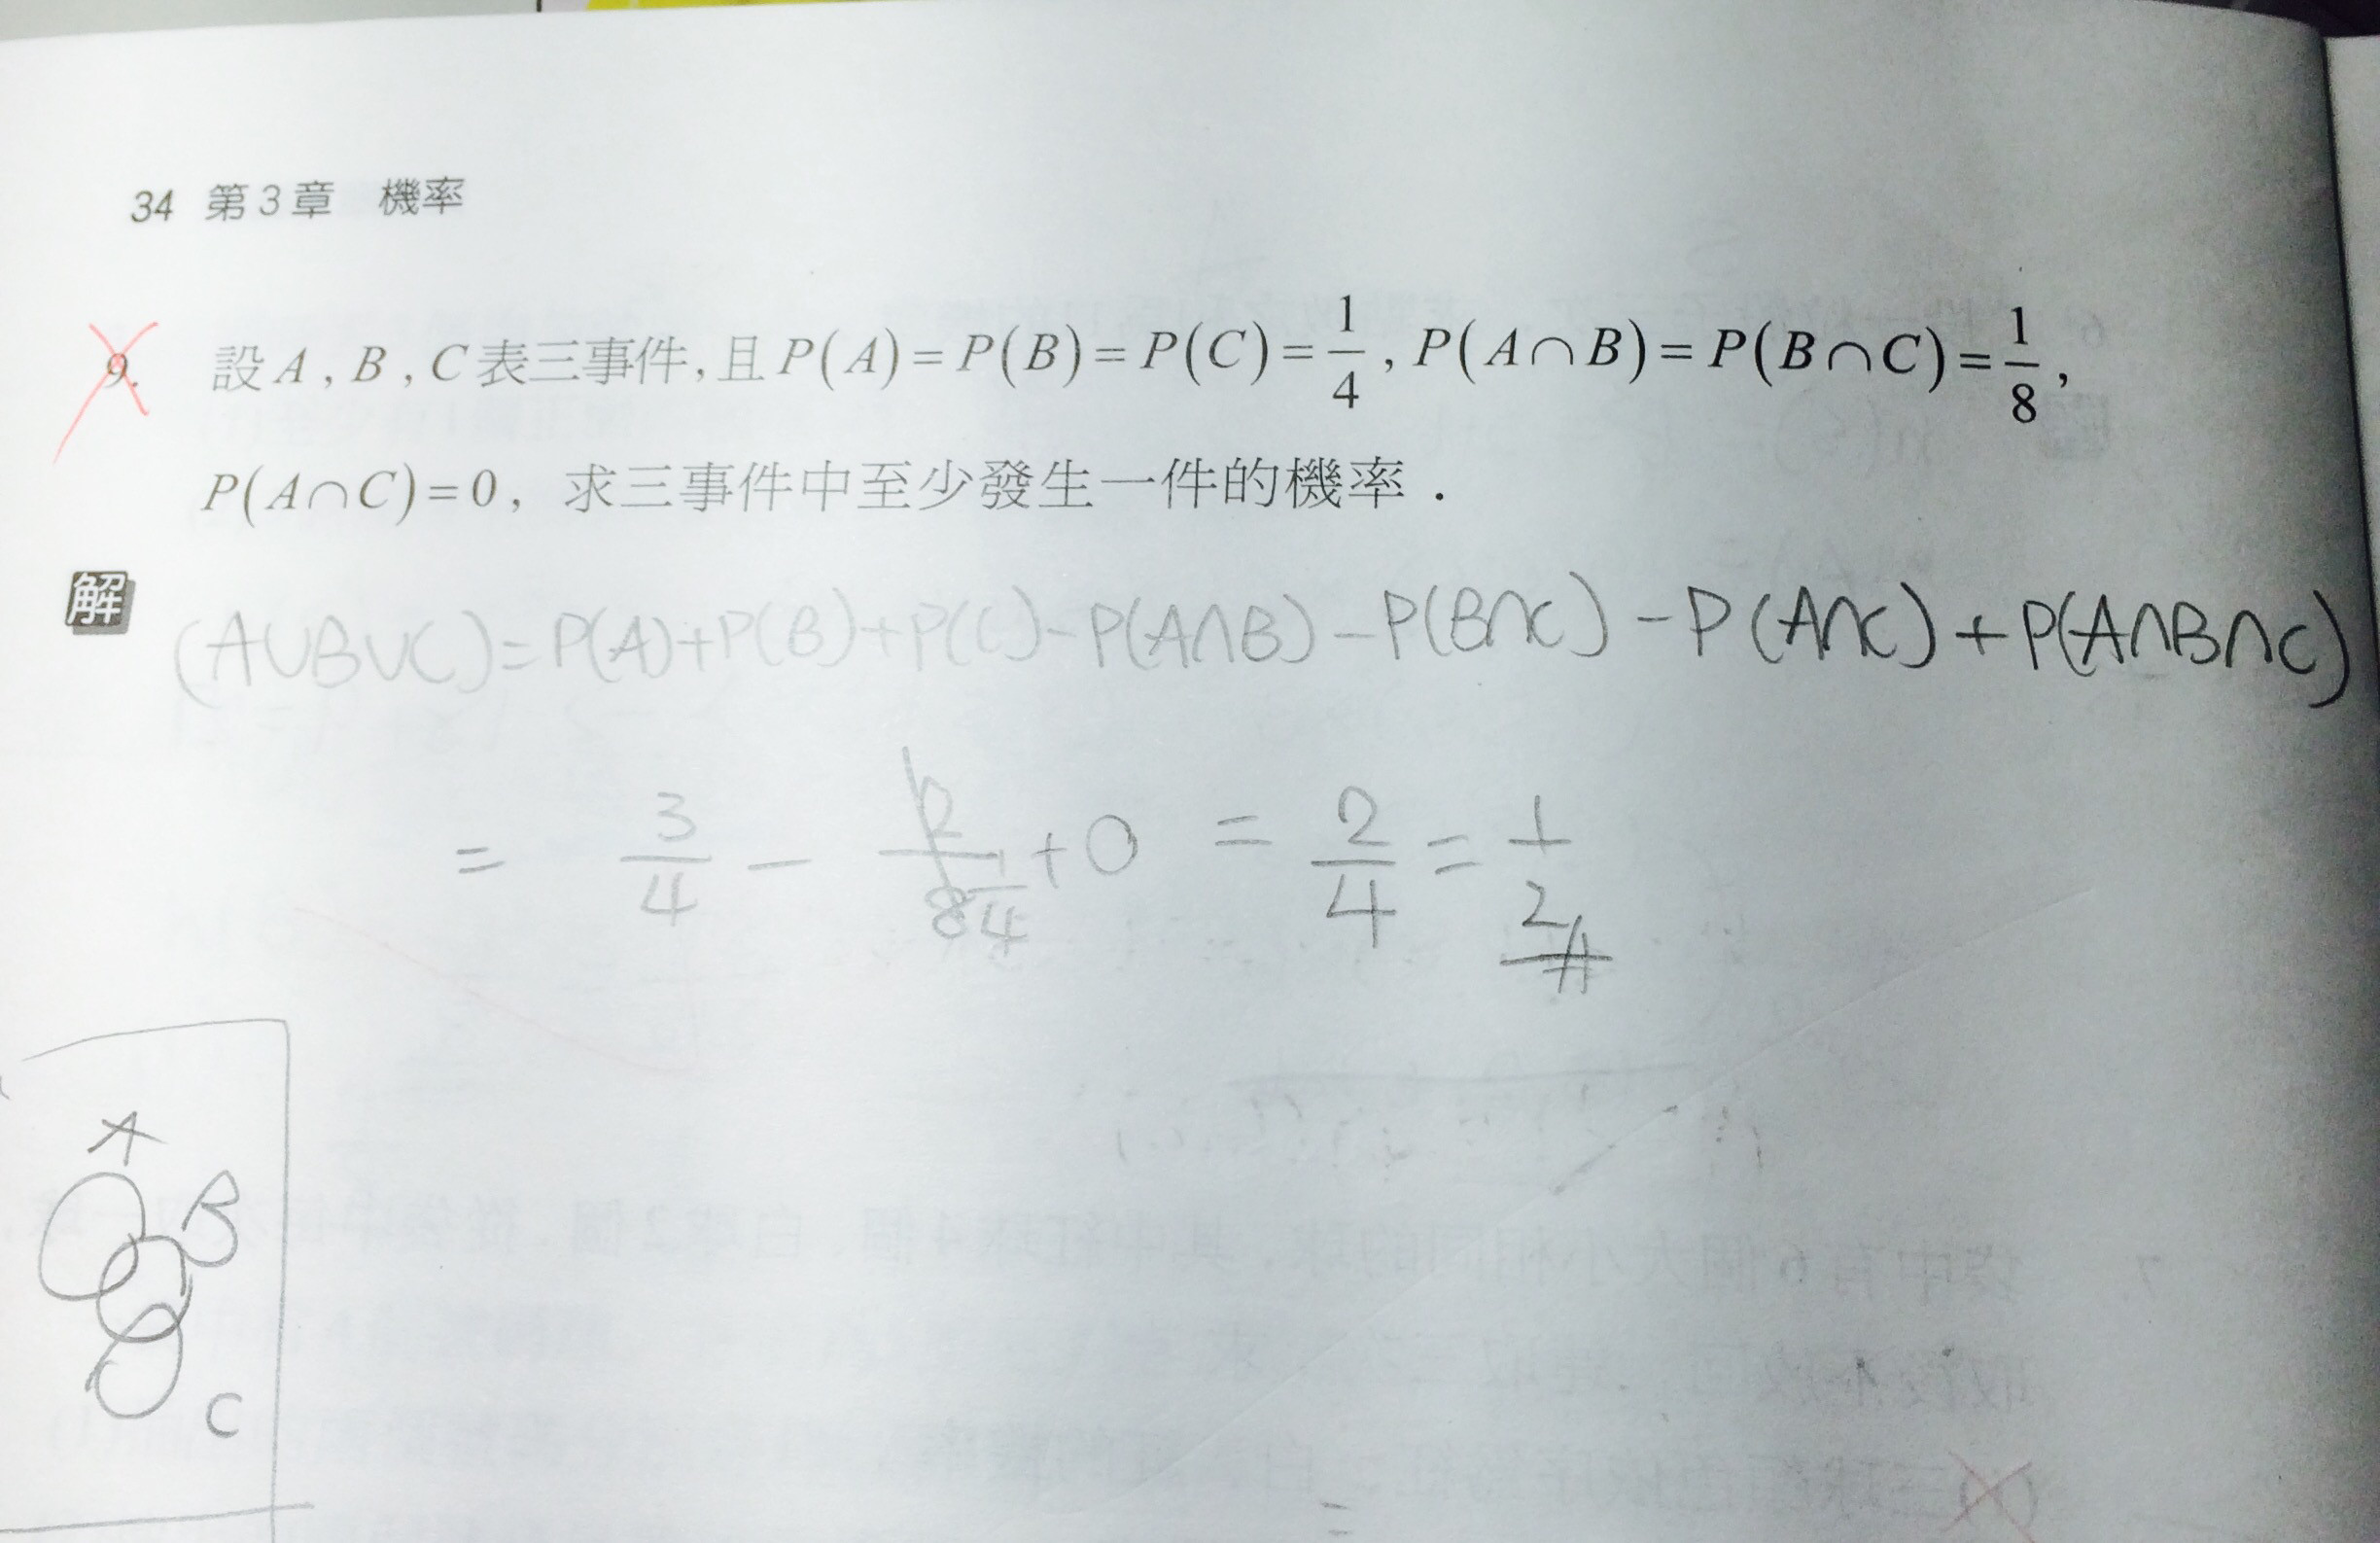 34 第3章 機率
9. 設A,B,C表三事件,且P(A)=P(B)=P(C)=1/4,P(A∩B)=P(B∩C)=1/8,
P(A∩C)=0,求三事件中至少發生一件的機率.
解
(A∪B∪C)=P(A)+P(B)+P(C)-P(A∩B)-P(B∩C)-P(A∩C)+P(A∩B∩C)
= 3/4 - 2/8 1/4 + 0 = 2/4 = 1/2
A
B
C